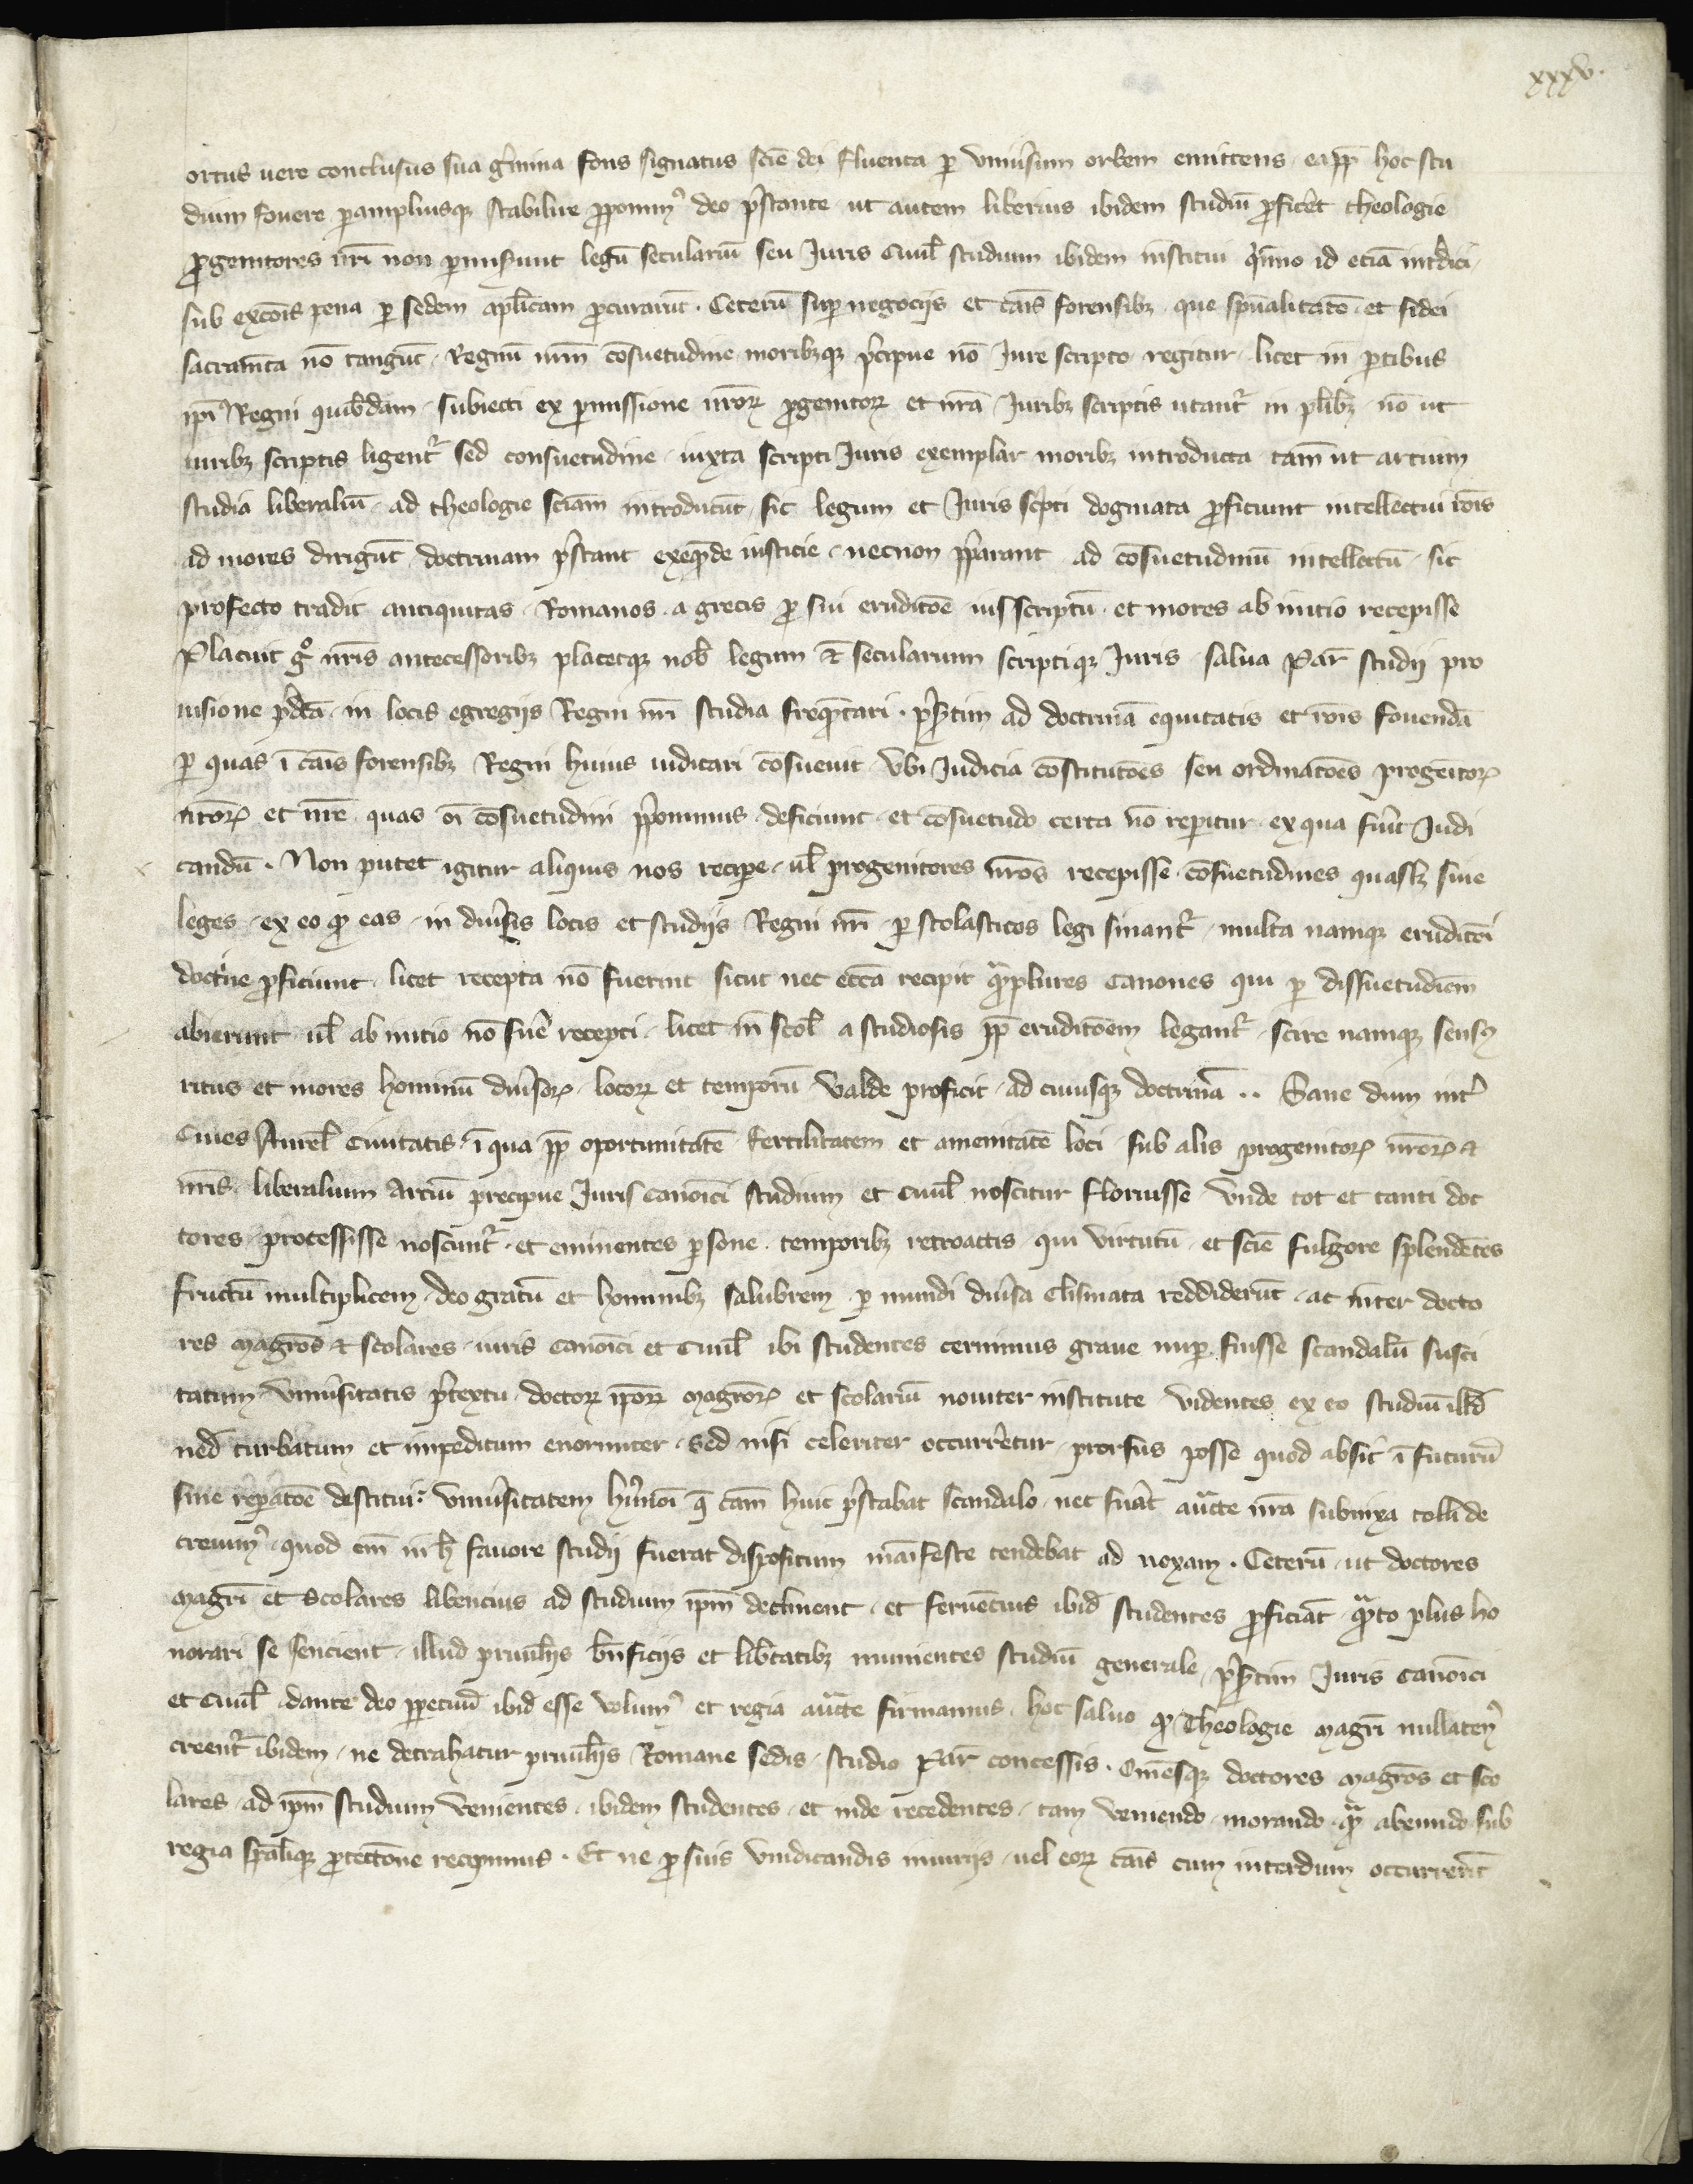 xxxv.
ortus vere conclusus sua gˀmina fons signatus sciē dei fluenta ꝑ vniuˀsum orbem emittens eapp̄ hoc stu
dium fouere ꝑampliusqꝫ stabilire ꝓponimꝰ deo pˀstante ut autem liberius ibidem studiū ꝓficeˀt theologie
ꝓgenitores nr̄i non ꝑmiserunt legū seculariū seu Juris Ciuił studium ibidem institui qˀimmo id eciā intˀdici
sub excōis pena ꝑ sedem apl̄icam ꝓcurarūt . Ceterū suꝑ negocijs et cāis forensibꝫ que spūalitatē et fidei
sacramēta nō tangūt Regnū nr̄m cōsuetudine moribꝫqꝫ pˀcipue nō Jure scripto regitur licet in ꝑtibus
ip̄i Regni quibˀdam subiecti ex ꝑmissione nrōꝝ ꝓgenitoꝝ et nr̄a Juribꝫ scriptis utantˀ in pl̄ibꝫ nō ut
iuribꝫ scriptis ligentˀ sed consuetudine iuxta scripti Juris exemplar moribꝫ introducta tam̄ ut artium
studia liberaliū ad theologie sciam̄ introducūt sic legum et Juris scˀpti dogmata ꝓficiunt intellectui rōis
ad mores dirigūt doctrinam pˀstant exeqn̄de iusticie necnon pˀparant ad cōsuetudinū intellectū sic
profecto tradit antiquitas Romanos a grecis ꝓ sui eruditōe ius scriptū et mores ab initio recepisse
Placuit gͦ nr̄is antecessoribꝫ placetqꝫ nob̄ legum et secularium scriptiqꝫ Juris salua Par̄ studij pro
uisione pˀdc̄ā in locis egregijs Regni nr̄i studia freqn̄tari pˀsˀtim ad doctrinā equitatis et rōis fouendā
ꝑ quas ī cāis forensibꝫ Regni huius iudicari cōsueuit vbi Judicia cōstitutōes seu ordinatōes progenitoꝝ
nrōꝝ et nr̄e quas oī cōsuetudini pˀponimus deficiunt et cōsuetudo certa nō reperitur ex qua fuˀit Judi
candū . Non putet igitur aliquis nos recipe ul̄ progenitores nrōs recepisse cōsuetudines quaslꝫ siue
leges ex eo ꝙ eas in diuˀsis locis et studijs Regni nr̄i ꝑ scolasticos legi sinantˀ multa namqꝫ eruditōi
doctˀine ꝓficiunt licet recepta nō fuerint sicut nec ecc̄ā recipit qˀmplures Canones qui ꝑ dissuetudīem
abierunt ul̄ ab initio nō fuēˀ recepti licet in scol̄ a studiosis pp̄ eruditōem legantˀ scire namqꝫ sensꝰ
ritus et mores hominū diuˀsoꝝ locoꝝ et temporū valde proficit ad cuiusqꝫ doctrinā .. Sane dum intˀ
Ciues Aurel̄ Ciuitatis ī qua pp̄ oportunitatē fertilitatem et amenitatē loci sub alis progenitoꝝ nrōꝝ et
nr̄is liberalium Artiū precipue Juris canōici studium et ciuil̄ noscitur floruisse Vnde tot et tanti doc
tores processisse noscuntˀ et eminentes ꝑsone temporibꝫ retroactis qui virtutū et sciē fulgore splendētes
fructū multiplicem deo gratū et hominibꝫ salubrem ꝑ mundi diuˀsa climata reddiderūt ac inter docto
res magr̄os et scolares iuris canōici et ciuil̄ ibi studentes cernimus graue nuꝑ fuisse scandalū susci
tatum vniuˀsitatis pˀtextu doctoꝝ ip̄oꝝ magr̄oꝝ et scolariū nouiter institute videntes ex eo studiū ill̄d
ned̄ turbatum et impeditum enormiter sed nisi celeriter occurreˀtur prorsus posse quod absit ī futurū
sine reꝑatōe destitui vniuˀsitatem hˀmōi q̄ cām huic pˀstabat scandalo nec fuāˀt auc̄te nr̄a subnixa tolli de
creuimꝰ quod em̄ in h̄ fauore studij fuerat dispositum māifeste tendebat ad noxam . Ceterū ut doctores
magr̄i et Scolares libencius ad studium ip̄m declinent et feruēcius ibid̄ studentes ꝓficiāt qˀnto plus ho
norari se sencient illud priuil̄ijs bn̄ficijs et lib̄tatibꝫ munientes studiū generale pˀsˀtim Juris canōici
et ciuil̄ dante deo ꝑpetuū ibid̄ esse volumꝰ et regia auc̄te firmamus hoc saluo ꝙ Theologie magr̄i nullatenꝰ
creentˀ ibidem ne detrahatur priuil̄ijs Romane sedis studio Par̄ concessis . Om̄esqꝫ doctores magr̄os et sco
lares ad ip̄m studium venientes ibidem studentes et inde recedentes tam veniendo morando qˀm abeundo sub
regia sp̄aliqꝫ ꝓtectōne recipimus . Et ne ꝓ suis vindicandis iniurijs uel eoꝝ cāis cum interdum occurrerīt